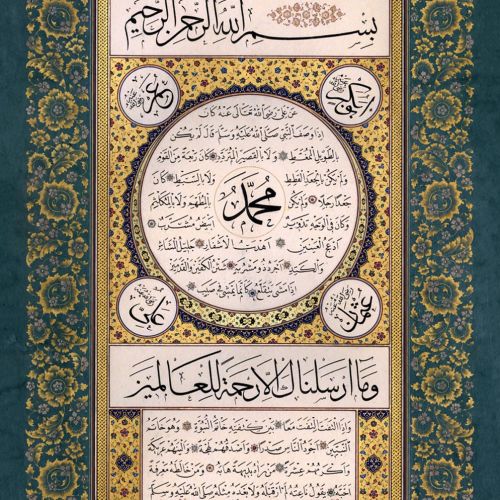 بسم الله الرحمن الرحيم
ابو بكر
عمر
عن علي رضي الله تعالى عنه كان
اذا وصف النبي صلى الله عليه وسلم قال لم يكن
بالطويل الممغط ولا بالقصير المتردد وكان ربعة من القوم
ولم يكن بالجعد القطط ولا بالسبط كان
جعدا رجلا ولم يكن بالمطهم ولا بالمكلثم
محمد
وكان في الوجه تدوير ابيض مشرب
ادعج العينين اهدب الاشفار جليل المشاش
والكتد اجرد ذو مسربة شثن الكفين والقدمين
اذا مشى يتقلع كانما يمشي في صبب
عثمان
علي
وما ارسلناك الا رحمة للعالمين
واذا التفت التفت معا بين كتفيه خاتم النبوة وهو خاتم
النبيين اجود الناس صدرا واصدقهم لهجة والينهم عريكة
واكرمهم عشرة من رآه بديهة هابه ومن خالطه معرفة
احبه يقول ناعته لم ار قبله ولا بعده مثله صلى الله عليه وسلم